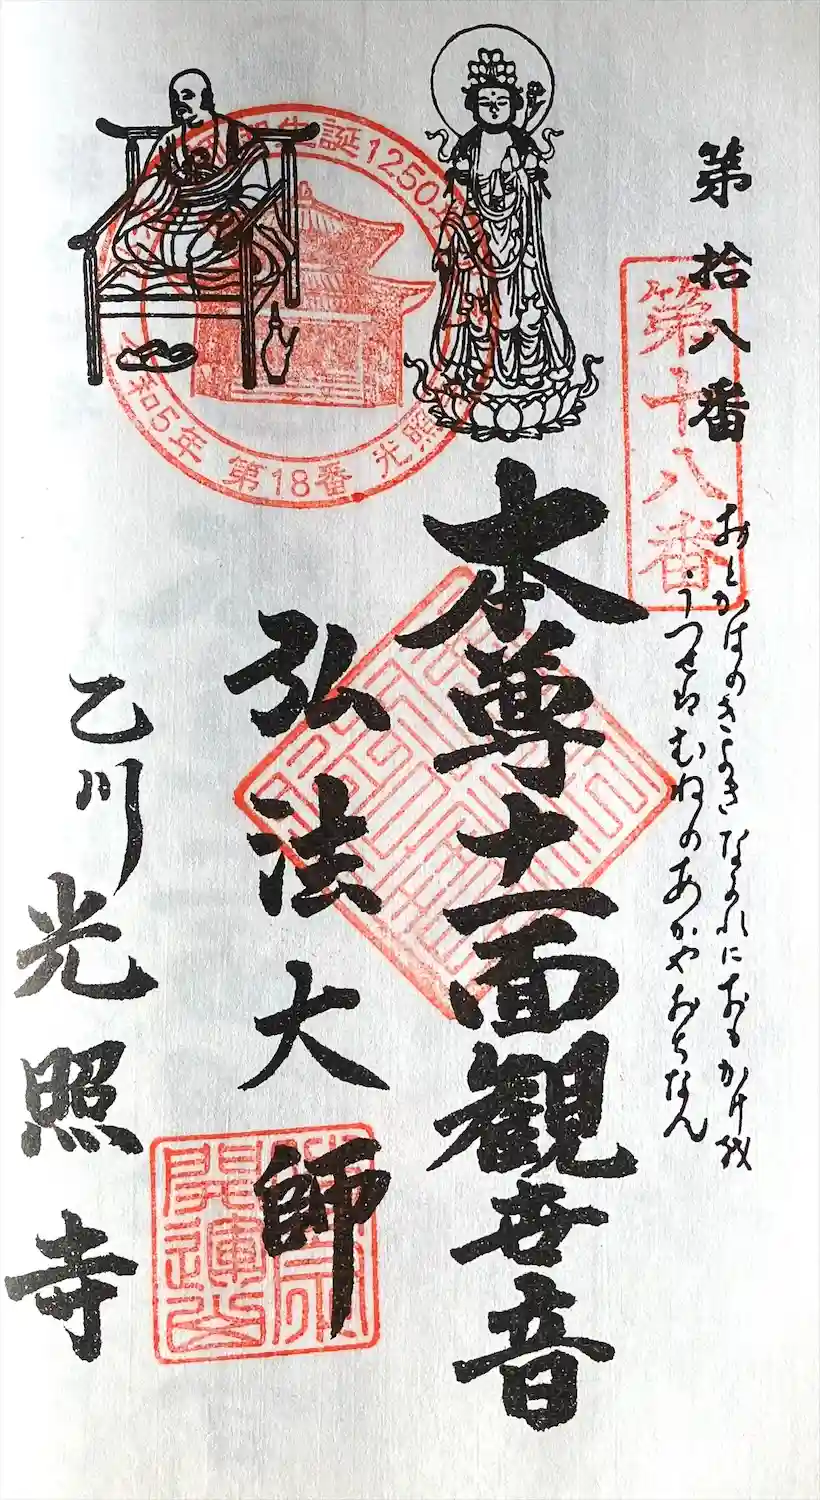 第拾八番
第十八番
おとがはのきよきながれにおもかけを
うつせばむねのあかやおちなん
本尊十一面観世音
弘法大師
乙川光照寺
生誕1250年
令和5年 第18番 光照